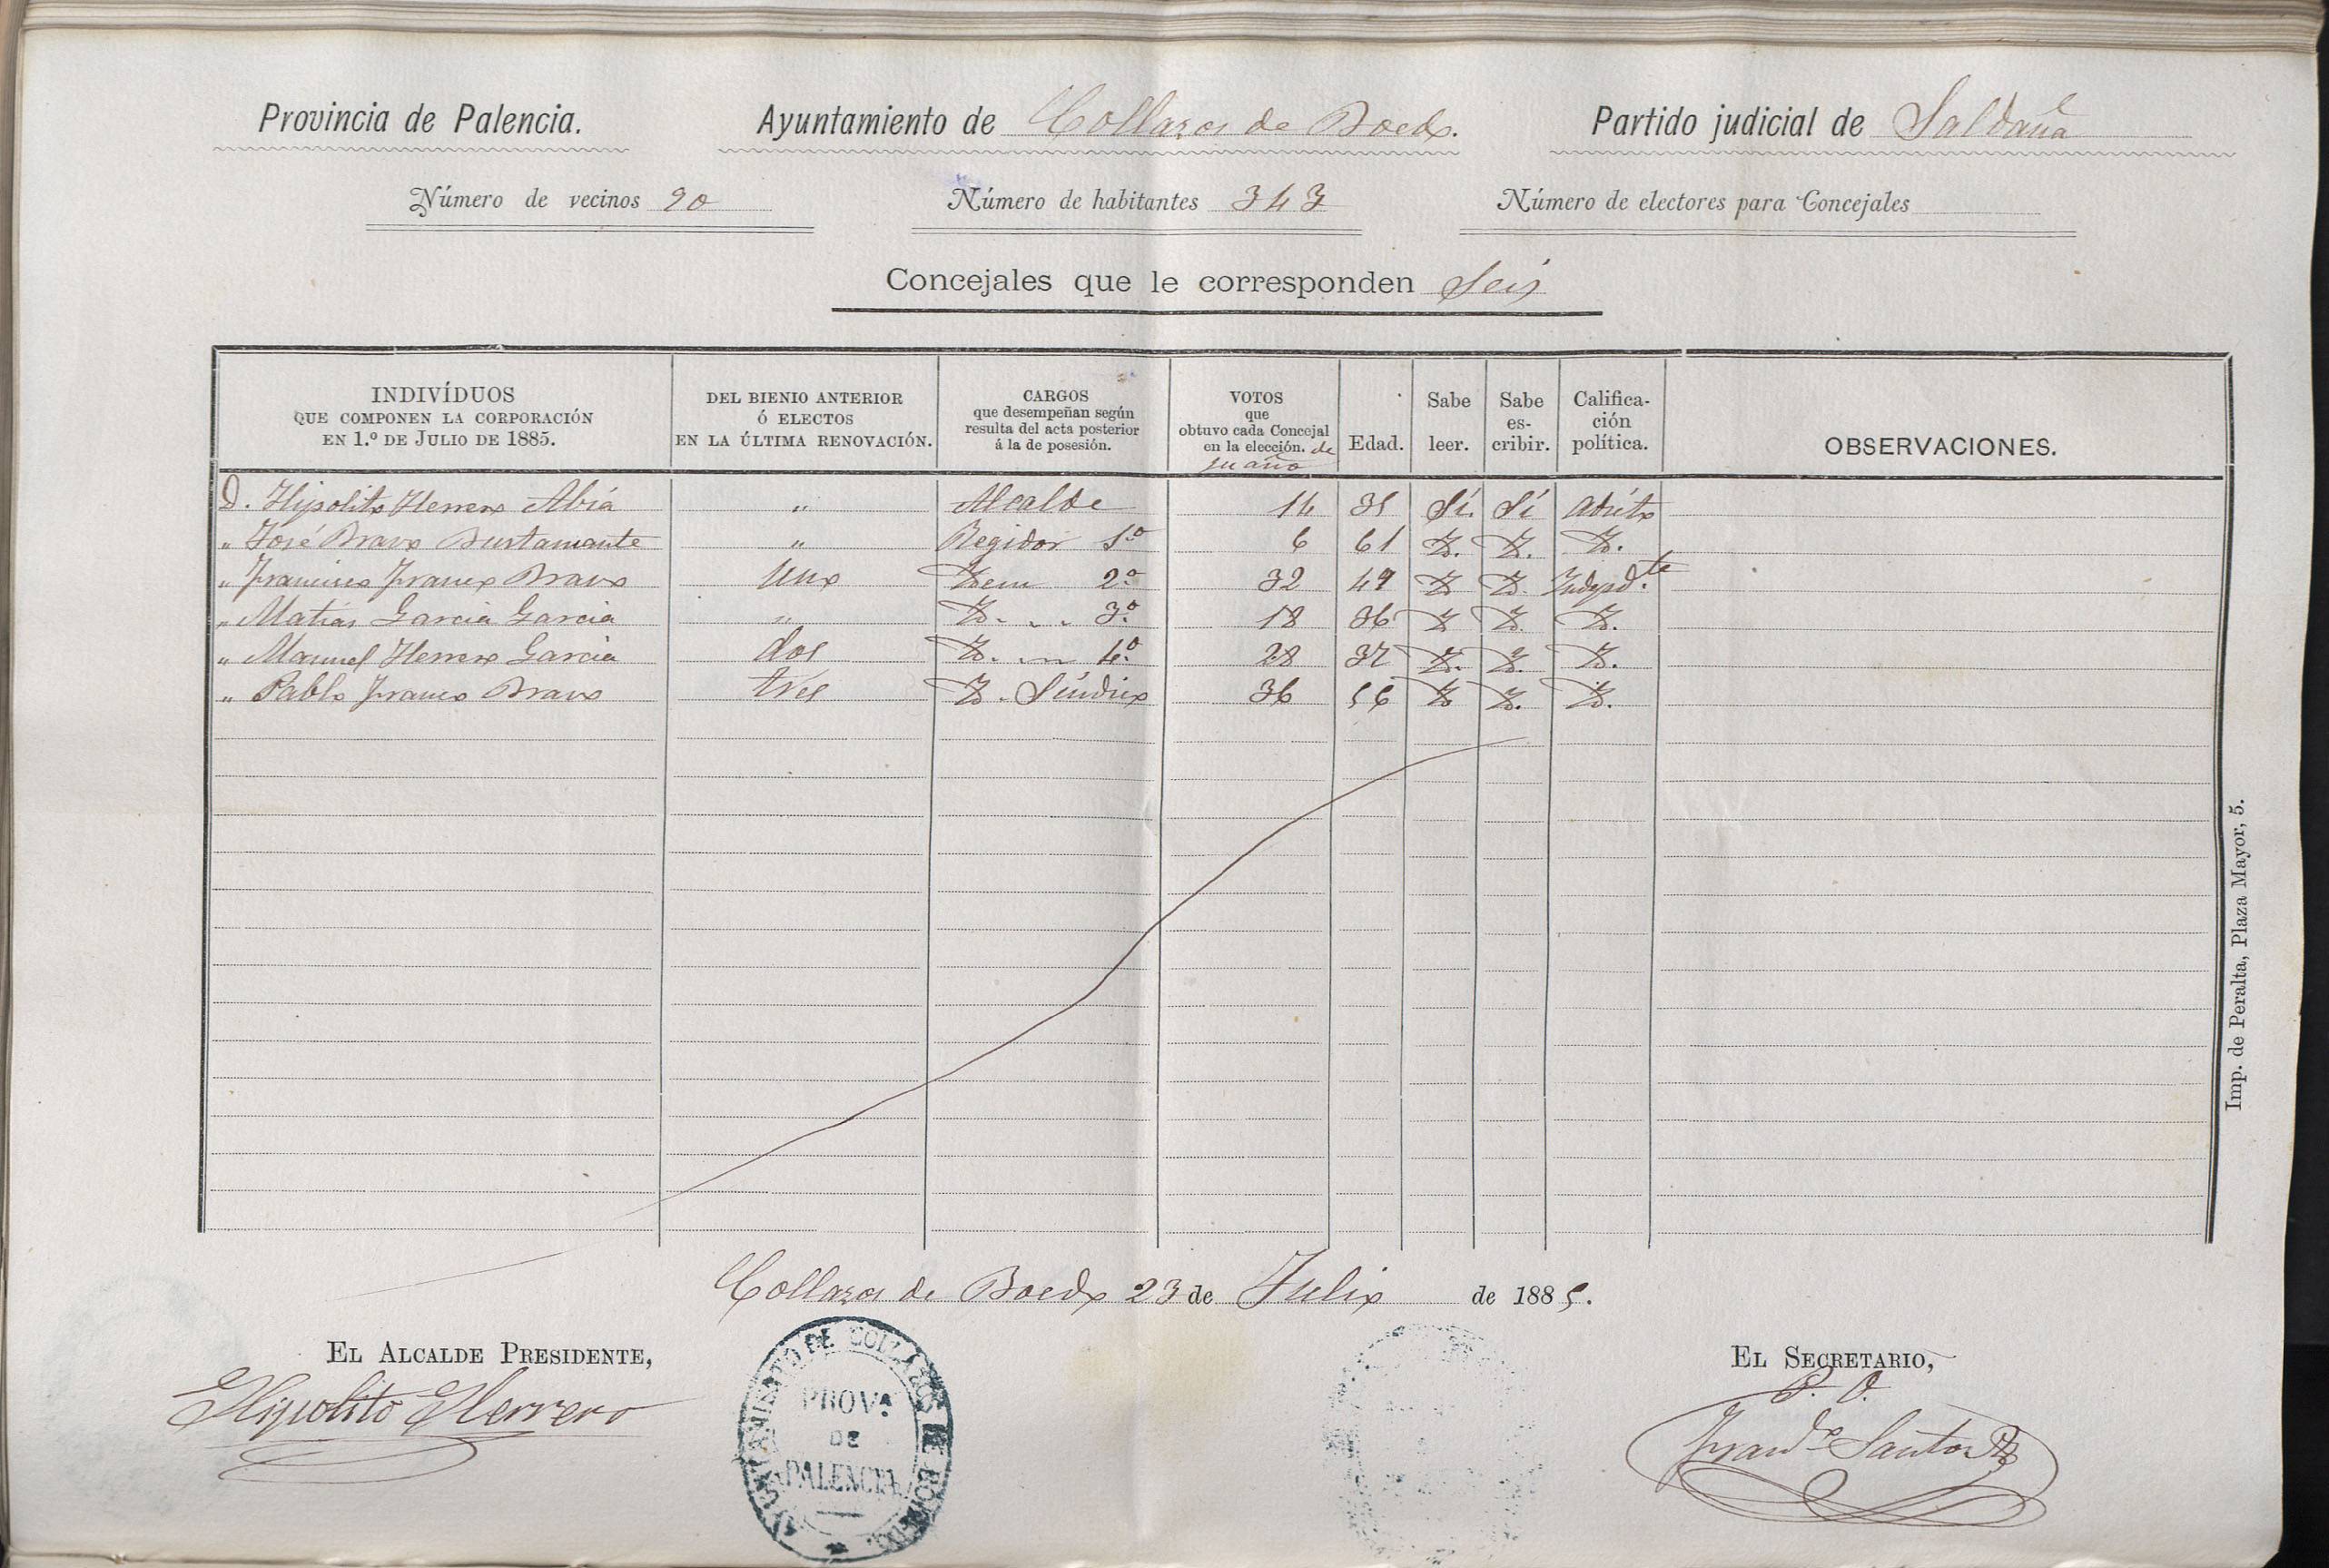 Provincia de Palencia. Ayuntamiento de Collazos de Boedo. Partido judicial de Saldaña
Número de vecinos 90 Número de habitantes 343 Número de electores para Concejales
Concejales que le corresponden Seis
INDIVÍDUOS QUE COMPONEN LA CORPORACIÓN EN 1.º DE JULIO DE 1885. DEL BIENIO ANTERIOR Ó ELECTOS EN LA ÚLTIMA RENOVACIÓN. CARGOS que desempeñan según resulta del acta posterior á la de posesión. VOTOS que obtuvo cada Concejal en la elección. de su año Edad. Sabe leer. Sabe es-cribir. Califica-ción política. OBSERVACIONES.
D. Hipolito Herrero Abia " Alcalde 14 35 Sí. Sí Adicto
" José Bravo Bustamante " Regidor 1º 6 61 Yd. Yd. Yd.
" Francisco Franco Bravo uno Ydem 2º 32 49 Yd Yd. Yndepd.te
" Matias Garcia Garcia " Yd. " " 3º 18 36 Yd Yd. Yd.
" Manuel Herrero Garcia dos Yd. " " 4º 28 37 Yd. Yd. Yd.
" Pablo Franco Bravo tres Yd. Síndico 36 56 Yd Yd. Yd.
Imp. de Peralta, Plaza Mayor, 5.
Collazos de Boedo 23 de Julio de 1885.
EL ALCALDE PRESIDENTE, EL SECRETARIO,
P. O.
Hipolito Herrero
AYUNTAMIENTO DE COLLAZOS DE BOEDO
PROVA
DE
PALENCIA
Santos